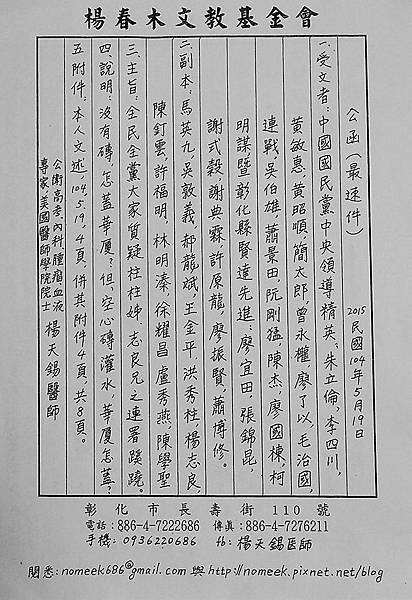 楊春木文教基金會
公函(最速件)
2015
民國104年5月19日
一.受文者:中國國民黨中央領導精英:朱立倫,李四川,
黃敏惠,黃昭順,簡太郎,曾永權,廖了以,毛治國,
連戰,吳伯雄,蕭景田,阮剛猛,陳杰,廖國棟,柯
明謀暨彰化縣賢達先進:廖宜田,張錦昆,
謝式穀,謝典霖,許原龍,廖振賢,蕭博修。
二.副本:馬英九,吳敦義,郝龍斌,王金平,洪秀柱,楊志良,
陳釘雲,許福明,林明溱,徐耀昌,盧秀燕,陳學聖
三.主旨:全民全黨大家質疑柱柱姊、志良兄之連署蹊蹺。
四.說明:沒有磚,怎蓋華厦?但,空心磚灌水,華厦怎蓋?
五.附件:本人文述(104.5.19.4頁,併其附件4頁,共8頁。
公衛高考內科,腫瘤,血液
專家,美國醫師學院院士
楊天錫醫師
彰化市長壽街110號
電話:886-4-7222686 傳真:886-4-7276211
手機:0936220686 fb:楊天錫医師
閱悉:nomeek686@gmail.com 與 http://nomeek.pixnet.net/blog